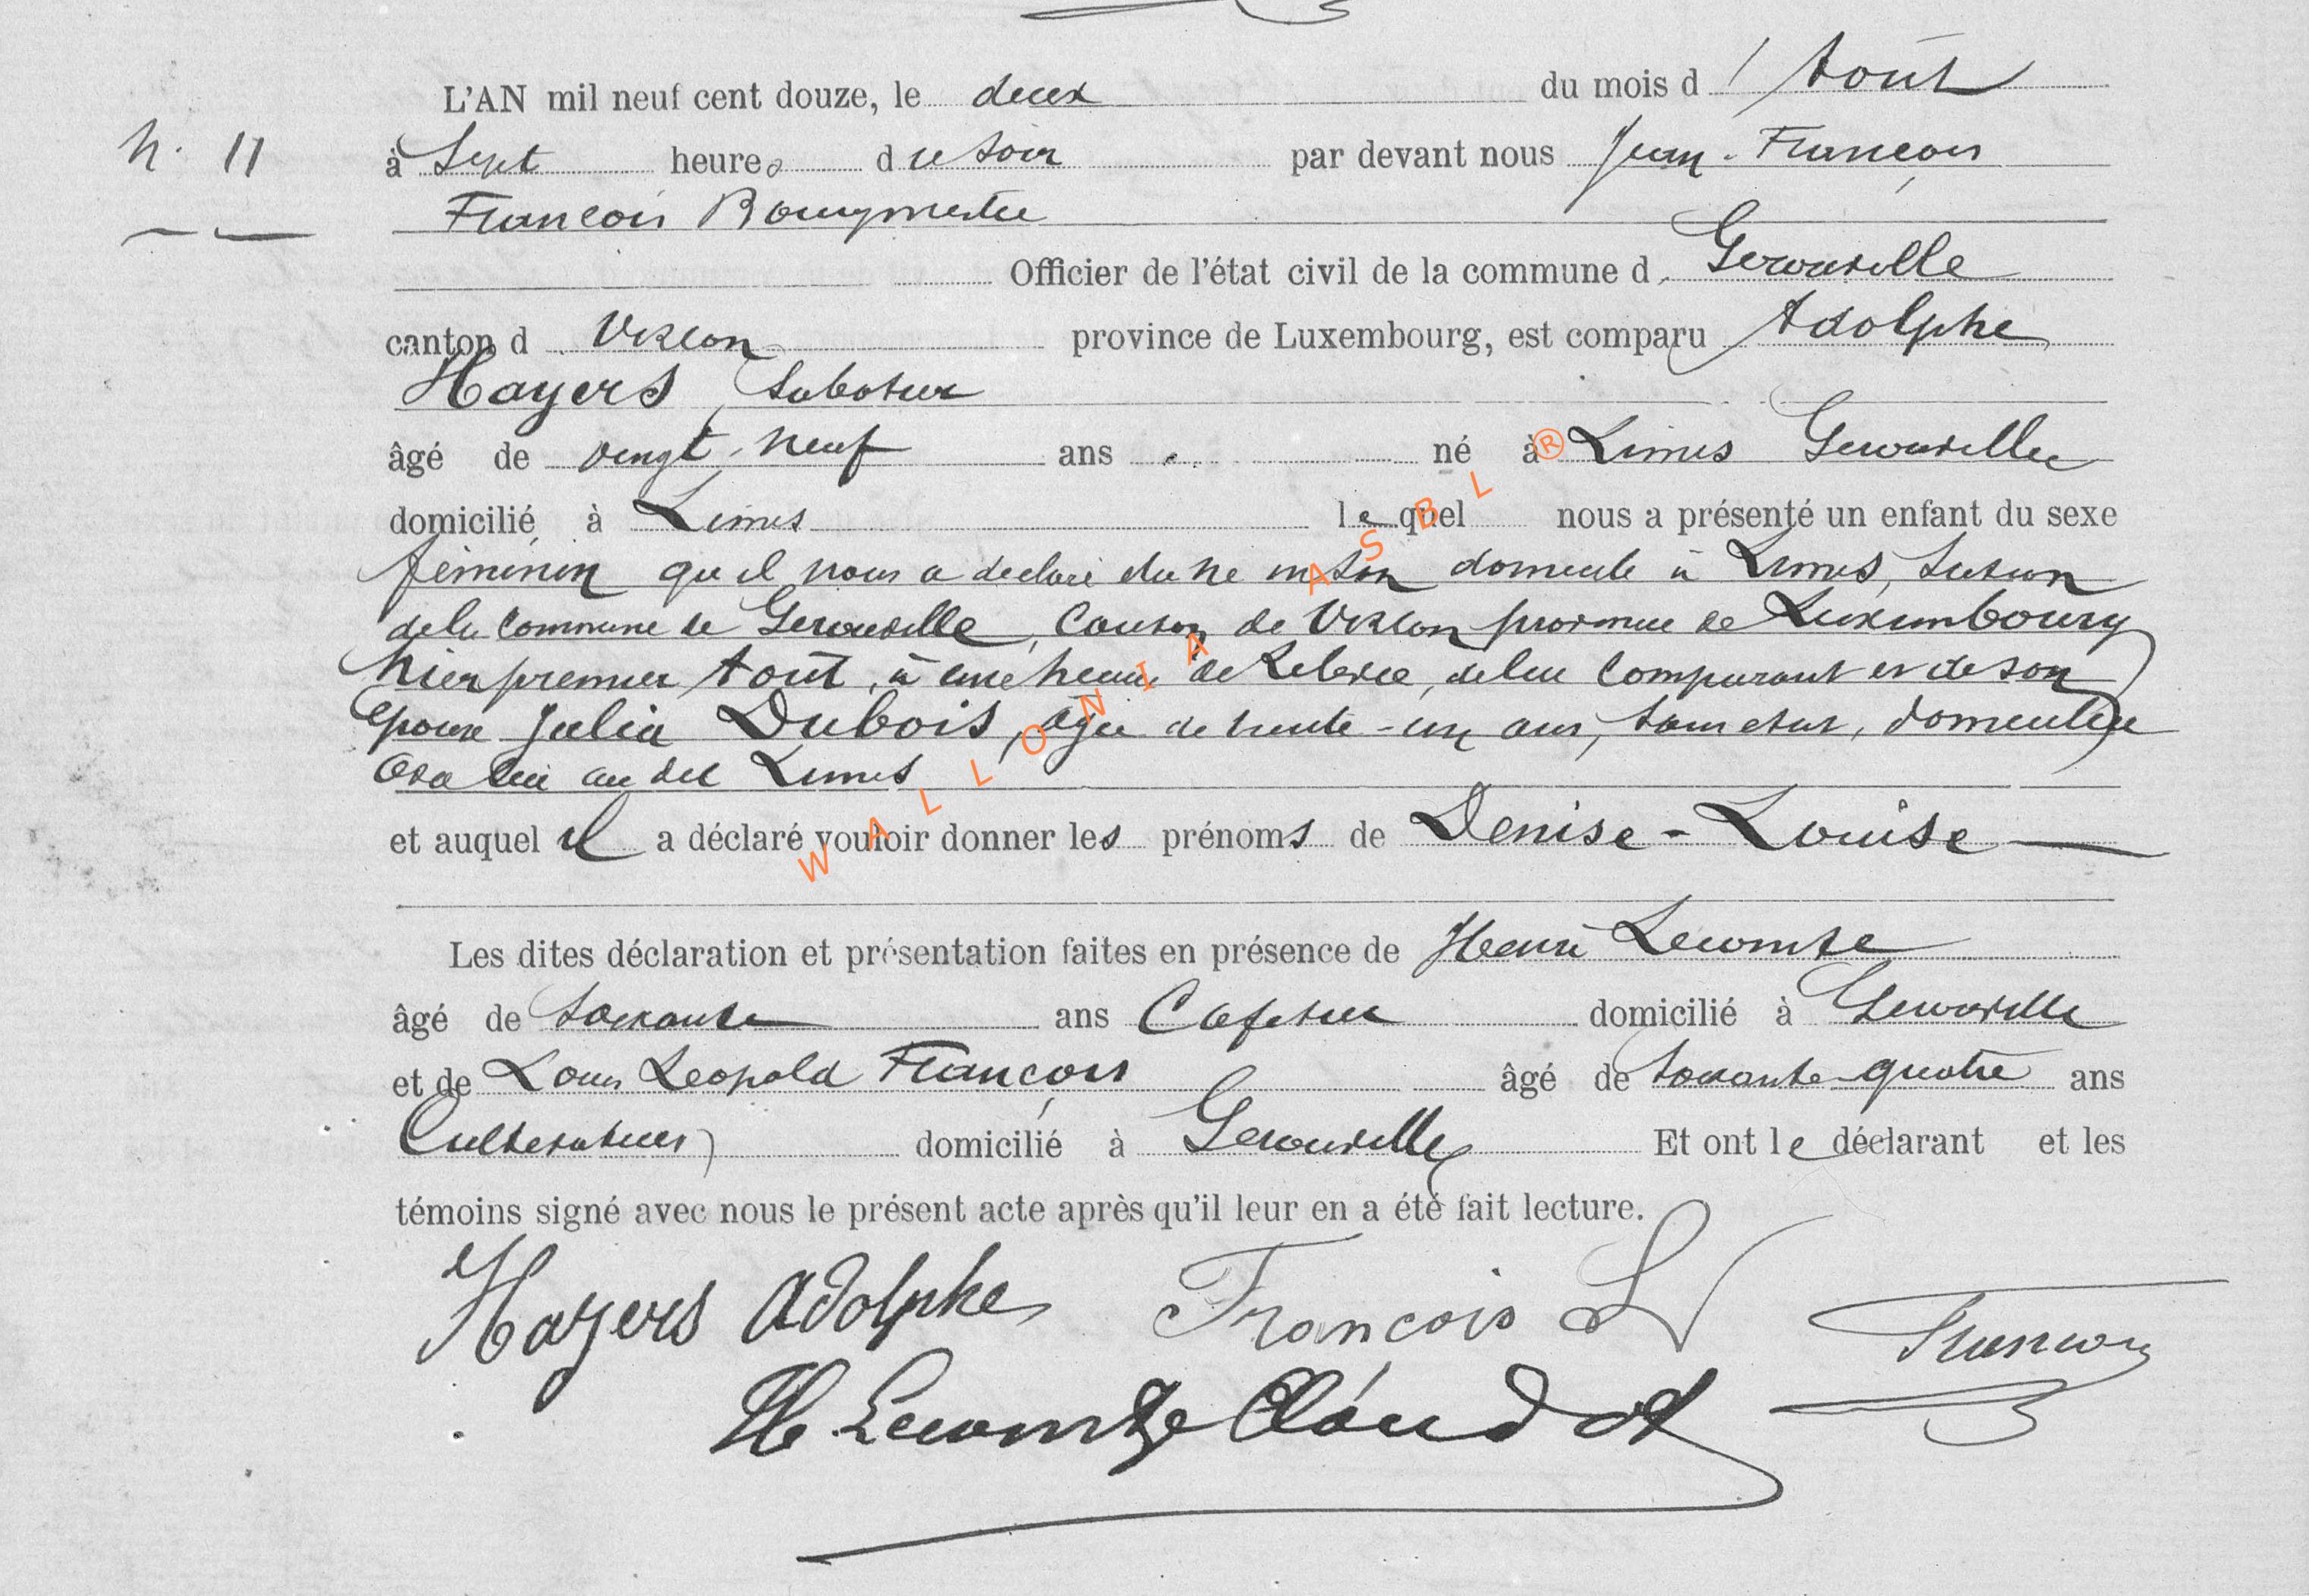 L'AN mil neuf cent douze, le deux du mois d'Août
N. 11
à Sept heures du soir par devant nous Jean-François
François Bourgmestre
Officier de l'état civil de la commune d Gerouville
canton d Virton province de Luxembourg, est comparu Adolphe
Hayers, Saboteur
âgé de vingt-neuf ans né à Limes Gerouville
domicilié à Limes lequel nous a présenté un enfant du sexe
féminin qu'il nous a déclaré être né en son domicile à Limes, Section
de la Commune de Gerouville, Canton de Virton province de Luxembourg
hier premier Août, à une heure de Relevée, de lui Comparant et de son
épouse Julia Dubois, âgée de trente-un ans, sans état, domiciliée
avec lui au dit Limes
et auquel il a déclaré vouloir donner les prénoms de Denise-Louise
Les dites déclaration et présentation faites en présence de Henri Lecomte
âgé de Soixante ans Cafetier domicilié à Gerouville
et de Louis Leopold François âgé de Soixante-quatre ans
Cultivateur domicilié à Gerouville Et ont le déclarant et les
témoins signé avec nous le présent acte après qu'il leur en a été fait lecture.
Hayers Adolphe François L
François
H. Lecomte Claudot
WALLONIA ASBL ®